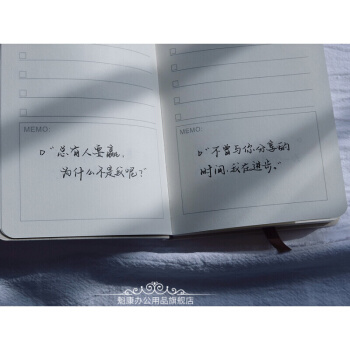 MEMO:
"总有人要赢,
为什么不是我呢?"
MEMO:
"不曾与你分享的
时间,我在进步。"
魁康办公用品旗舰店